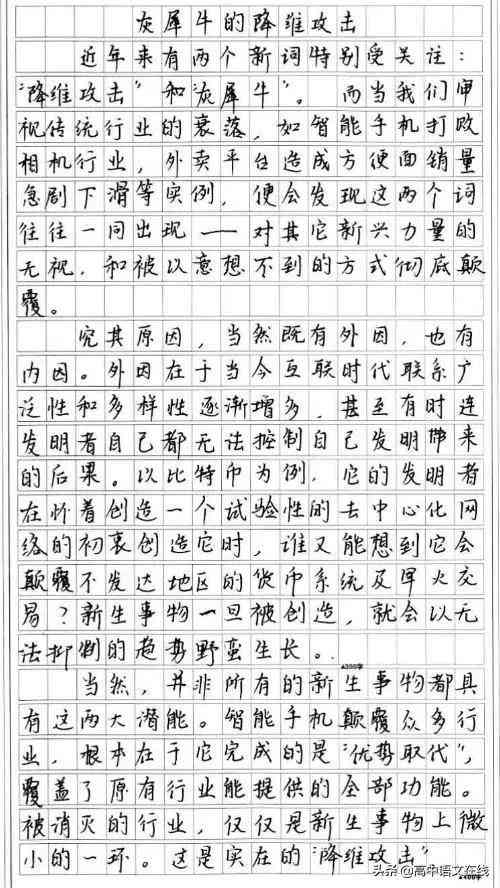 灰犀牛的降维攻击
近年来有两个新词特别受关注：
“降维攻击”和“灰犀牛”。而当我们审
视传统行业的衰落，如智能手机打败
相机行业，外卖平台造成方便面销量
急剧下滑等实例，便会发现这两个词
往往一同出现——对其它新兴力量的
无视，和被以意想不到的方式彻底颠
覆。
究其原因，当然既有外因，也有
内因。外因在于当今互联时代联系广
泛性和多样性逐渐增多，甚至有时连
发明者自己都无法控制自己发明带来
的后果。以比特币为例，它的发明者
在怀着创造一个试验性的去中心化网
络的初衷创造它时，谁又能想到它会
颠覆不发达地区的货币系统及军火交
易？新生事物一旦被创造，就会以无
法抑制的趋势野蛮生长。
▲200字
当然，并非所有的新生事物都具
有这两大潜能。智能手机颠覆众多行
业，根本在于它完成的是“优势取代”，
覆盖了原有行业能提供的全部功能。
被消灭的行业，仅仅是新生事物上微
小的一环。这是实在的“降维攻击”
头条@高中语文在线